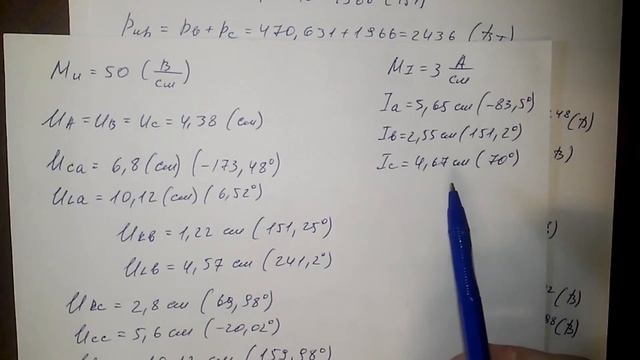 Pпр = Pв + Pc = 470,631 + 1966 = 2436 (Вт)
Mu = 50 (В/см)
UA = UB = UC = 4,38 (см)
Uca = 6,8 (см) (-173,48°)
ULa = 10,12 (см) (6,52°)
URB = 1,22 см (151,25°)
ULB = 4,57 см (241,2°)
URC = 2,8 см (69,98°)
UCC = 5,6 см (-20,02°)
MI = 3 А/см
Ia = 5,65 см (-83,5°)
Iв = 2,55 см (151,2°)
Ic = 4,67 см (70°)